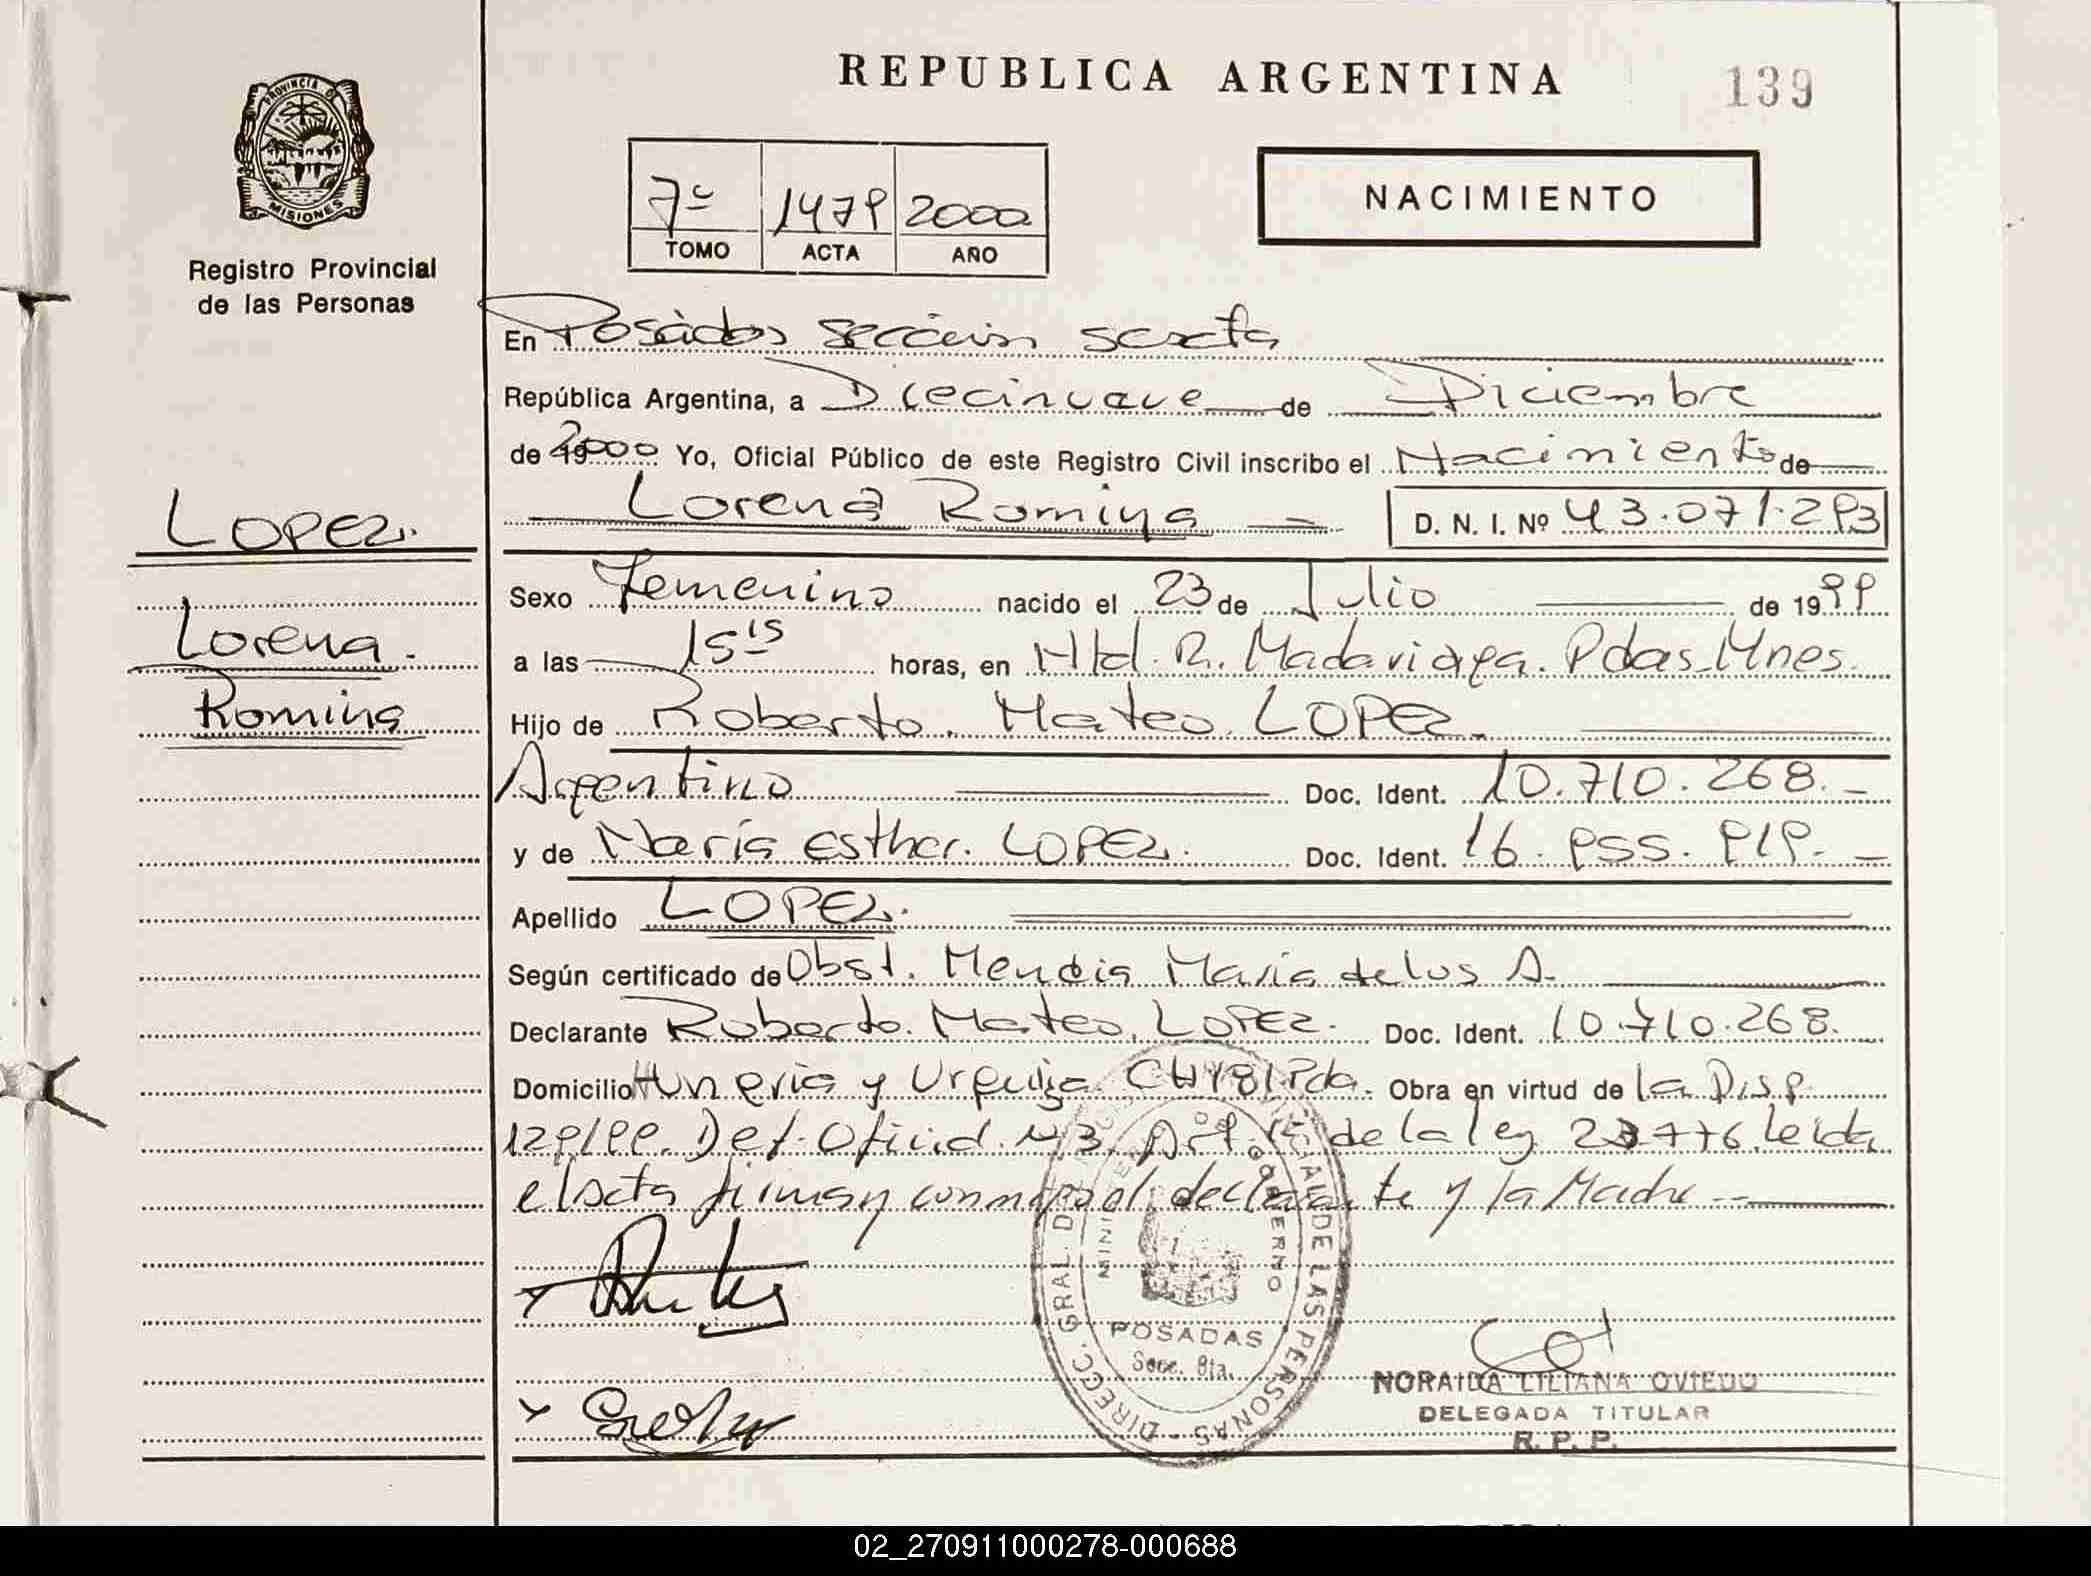 REPUBLICA ARGENTINA
139
PROVINCIA DE
MISIONES
Registro Provincial
de las Personas
7º 1479 2000
TOMO ACTA AÑO
NACIMIENTO
En Posadas sección sexta
República Argentina, a Diecinueve de Diciembre
de 2000 Yo, Oficial Público de este Registro Civil inscribo el Nacimiento de
Lorena Romina D. N. I. Nº 43.071.293
LOPEZ.
Lorena
Romina
Sexo Femenino nacido el 23 de Julio de 1999
a las 15 15 horas, en Htal. R. Madariaga. Pdas. Mnes.
Hijo de Roberto Mateo LOPEZ
Argentino Doc. Ident. 10.710.268.
y de María Esther LOPEZ. Doc. Ident. 16.
Apellido LOPEZ.
Según certificado de Obst. Mendia María de los A.
Declarante Roberto Mateo LOPEZ. Doc. Ident. 10.710.268.
Domicilio Hungria y Urquiza Pda. Obra en virtud de la Disp
129/99. Def. Oficial Nº3 Art. de la ley 23776 Leida
el acta firman conmigo el declarante y la Madre
DIRECC. GRAL. DE LAS PERSONAS
POSADAS
Secc. 6ta.
NORAIDA LILIANA OVIEDO
DELEGADA TITULAR
R. P. P.
02_270911000278-000688